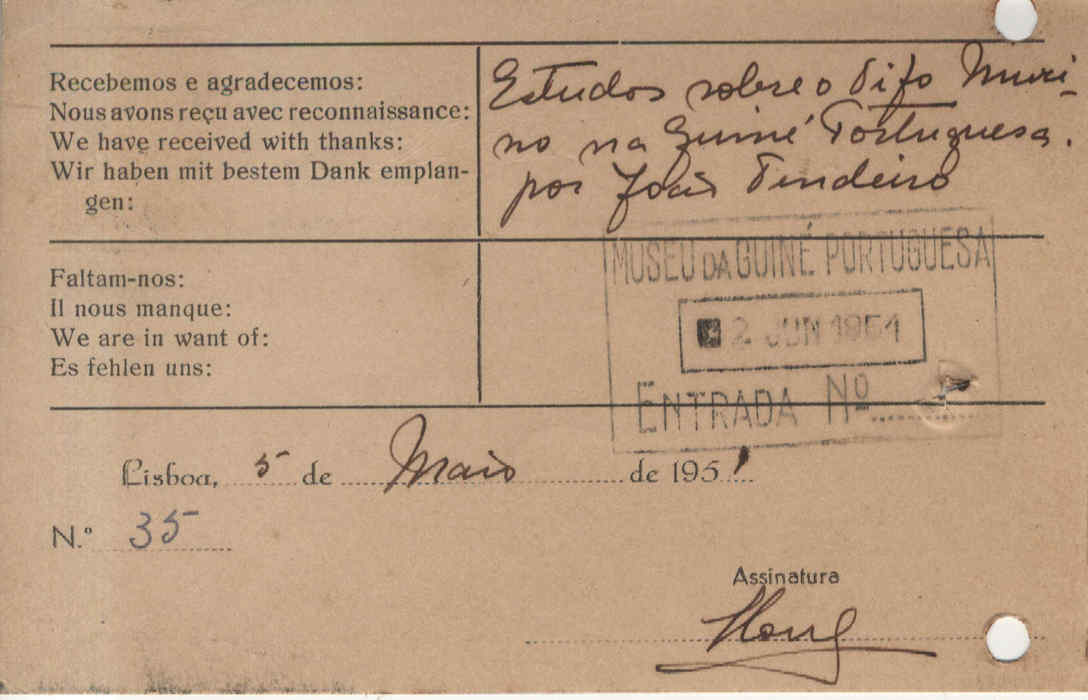 Recebemos e agradecemos:
Nous avons reçu avec reconnaissance:
We have received with thanks:
Wir haben mit bestem Dank emplan-
gen:
Estudos sobre o Tifo Muri-
no na Guiné Portuguesa.
por João Tendeiro
MUSEU DA GUINÉ PORTUGUESA
2 JUN 1951
ENTRADA Nº
Faltam-nos:
Il nous manque:
We are in want of:
Es fehlen uns:
Lisboa, 5 de Maio de 1951
N.º 35
Assinatura